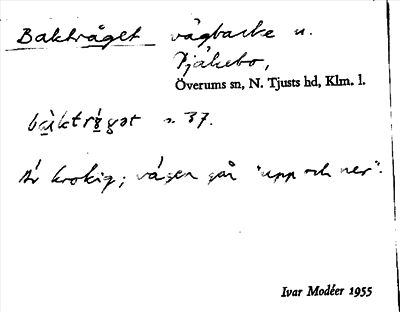 Bakträget vägbacke n.
Djäkebo,
Överums sn, N. Tjusts hd, Klm. l.
bàktrǻgət n. 37.
Är krokig; vägen går "upp och ner".
Ivar Modéer 1955